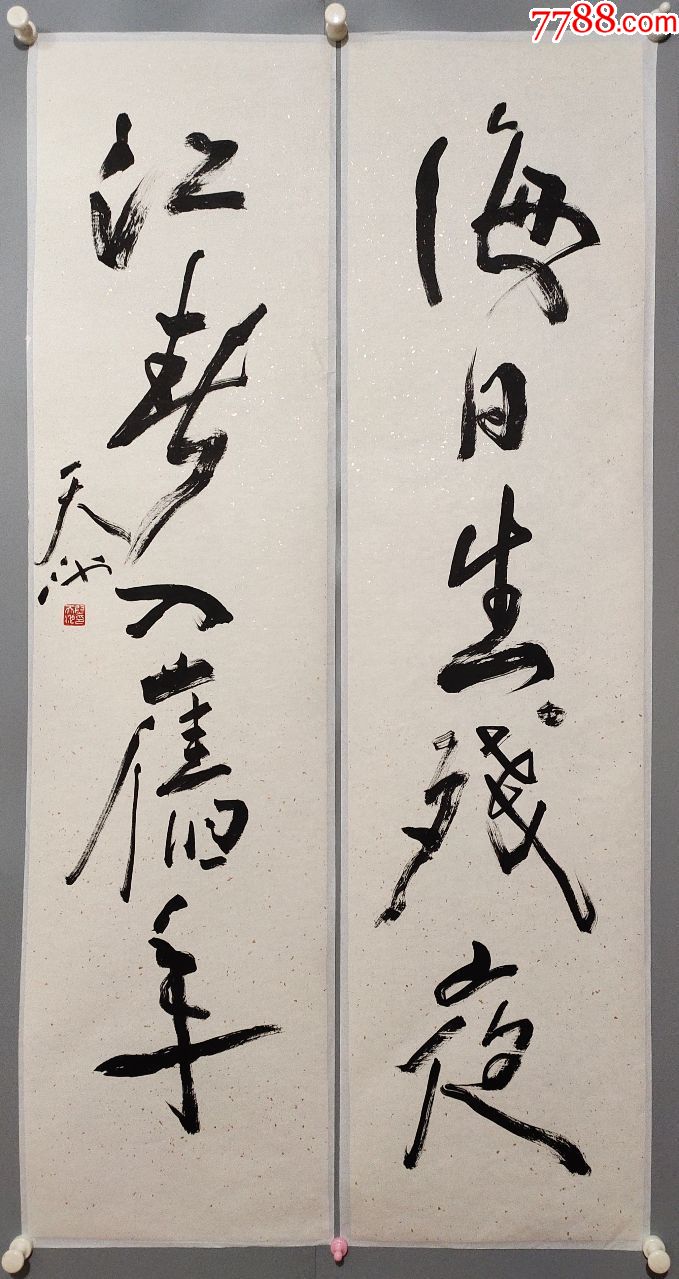 7788.com
海日生殘夜
江春入舊年
天池